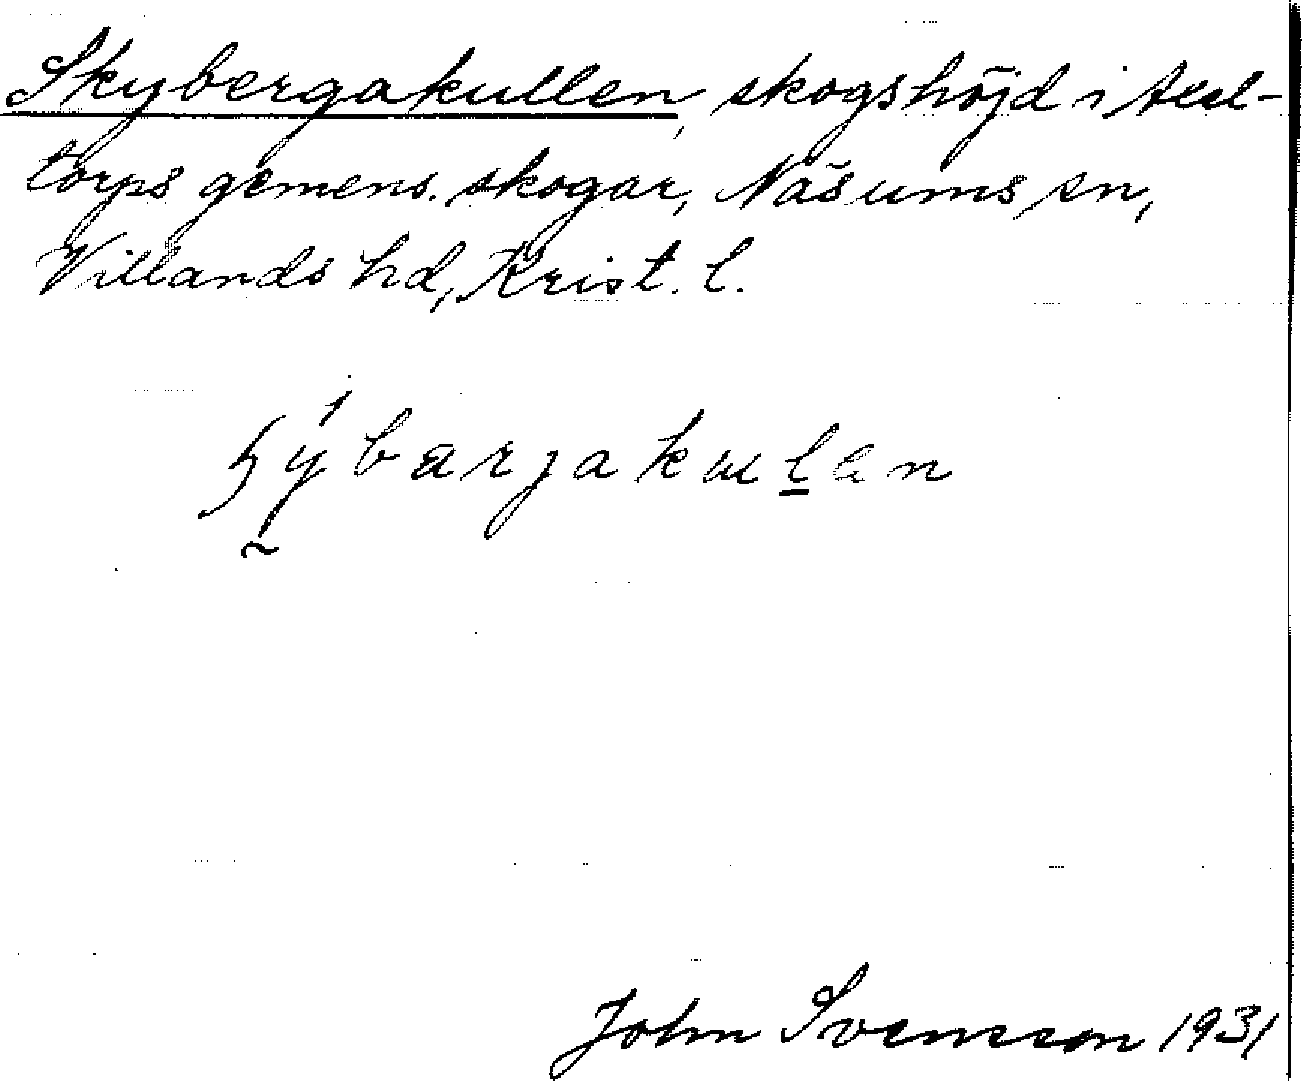 Skybergakullen, skogshöjd i Axel-
torps gemens. skogar, Näsums sn,
Villands hd, Krist. l.
John Svensson 1931